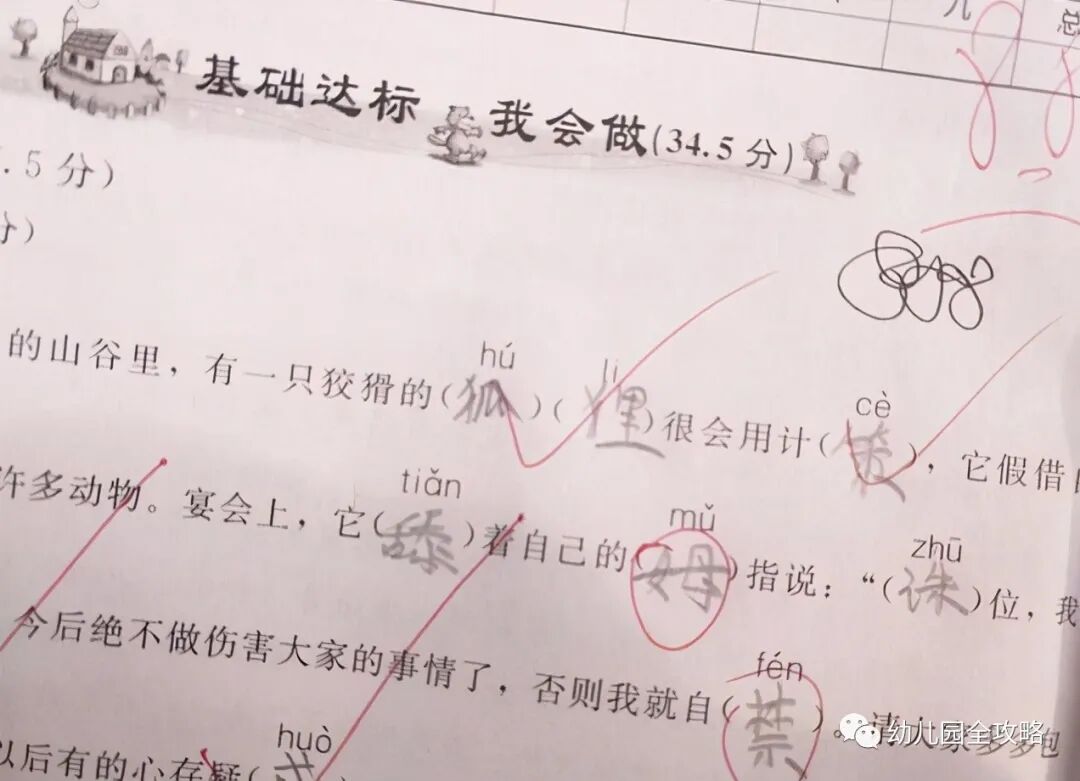 总
基础达标 我会做(34.5 分)
.5 分)
分)
hú li cè
的山谷里，有一只狡猾的(狐)(狸)很会用计(策)，它假借
tiǎn mǔ zhū
许多动物。宴会上，它(舔)着自己的(姆)指说：“(诛)位，我
fén
今后绝不做伤害大家的事情了，否则我就自(禁)。请大家多多包
huò
以后有的心存疑(
幼儿园全攻略